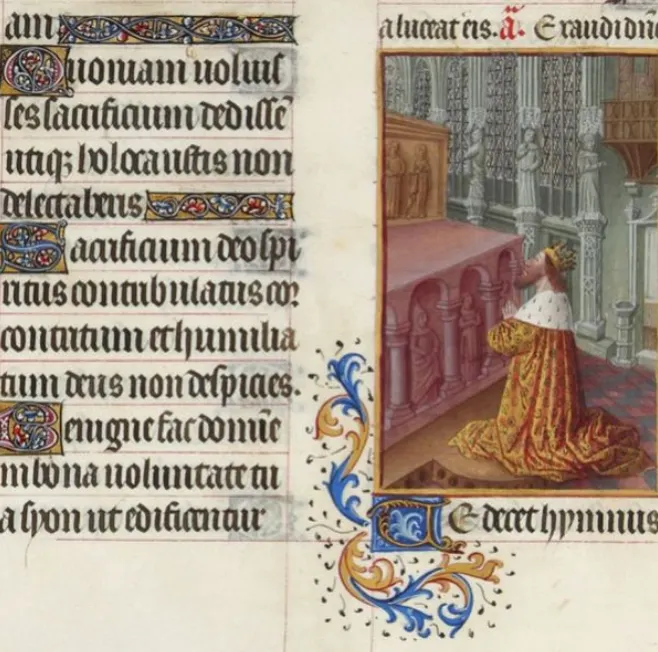 am
Quoniam uoluis
ses sacrificium dedissē
utiqꝫ holocaustis non
delectaberis
Sacrificium deo spi
ritus contribulatus cor
contritum et humilia
tum deus non despicies.
Benigne fac domīe
in bona uoluntate tu
a syon ut edificentur
a luceat eis. ā. Exaudi dn̄e
Te decet hymnus